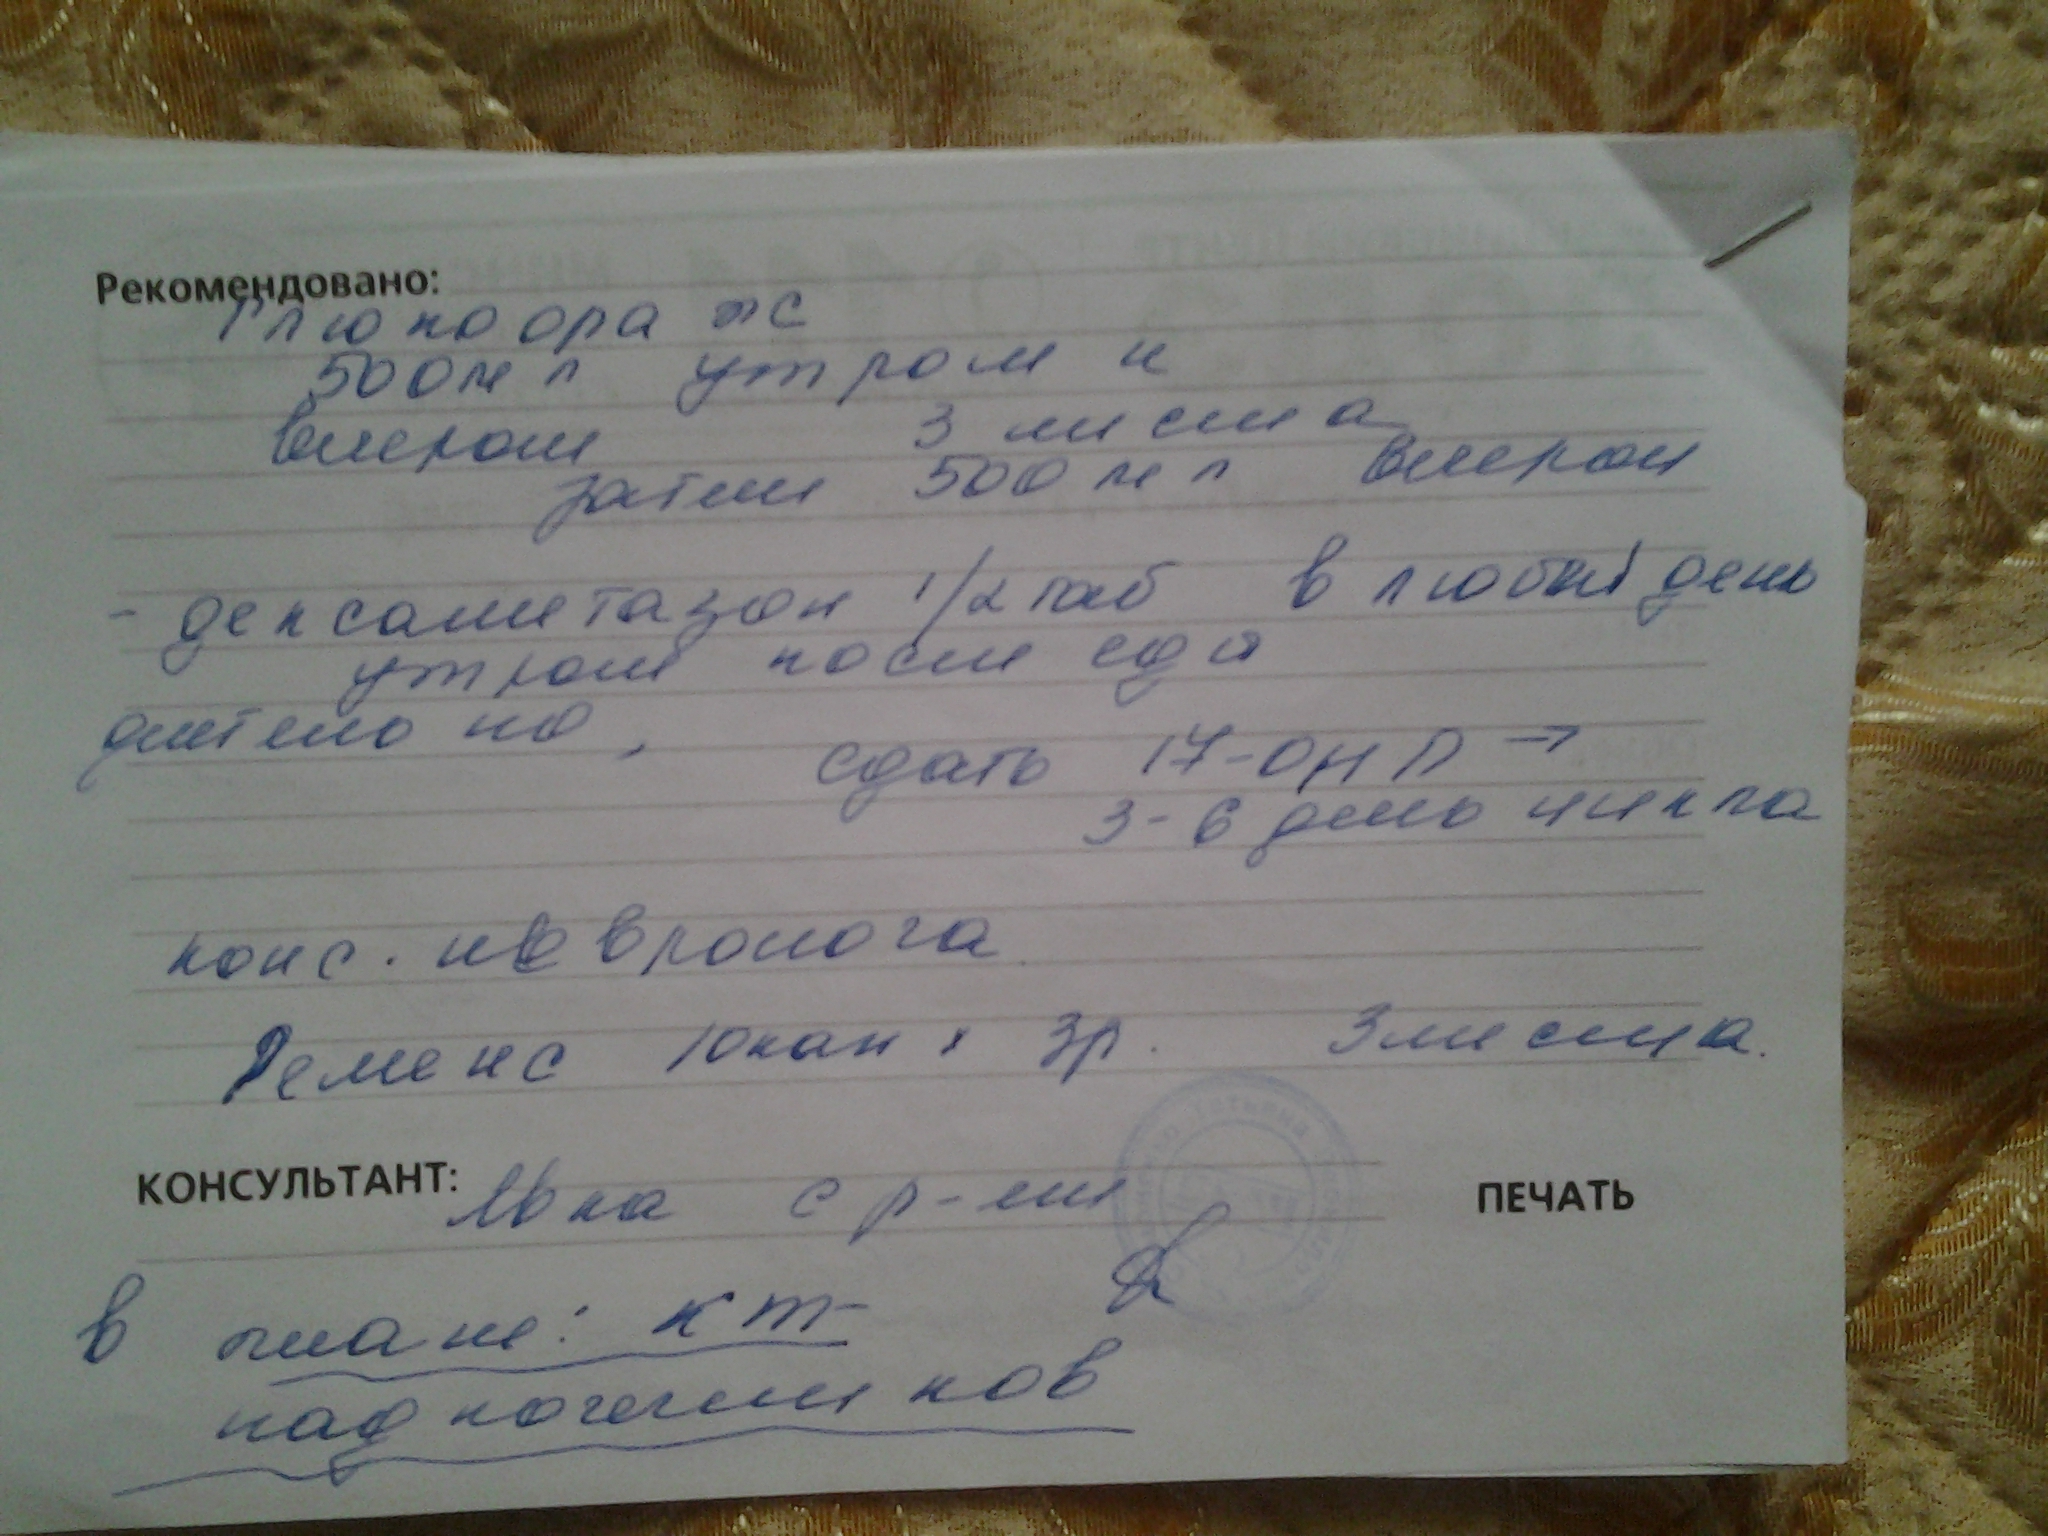 Рекомендовано:
Глюкофаж
500 мг утром и
вечером 3 месяца
затем 500 мг вечером
- дексаметазон 1/2 таб в любой день
утром после еды
длительно, сдать 17-ОНП →
3-6 день цикла
конс. невролога
Ременс 10 кап х 3 р. 3 месяца.
КОНСУЛЬТАНТ: Явка с р-ми
ПЕЧАТЬ
в плане: КТ-
надпочечников